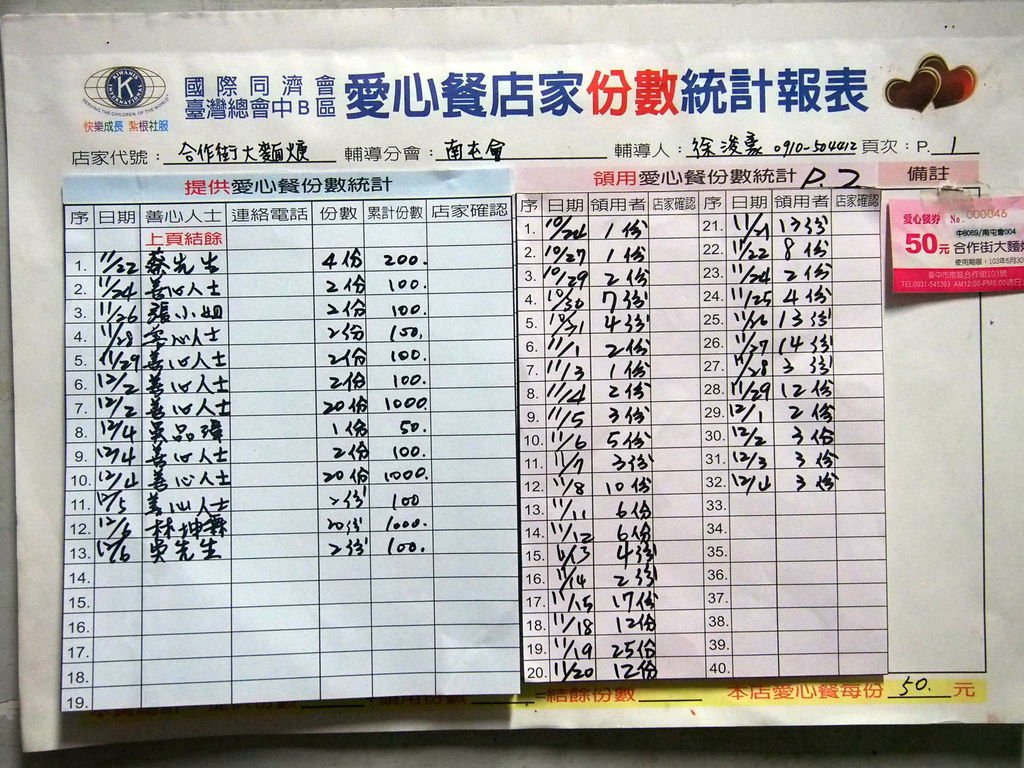 KIWANIS INTERNATIONAL
SERVING THE CHILDREN OF THE WORLD
快樂成長 紮根社服
國際同濟會
臺灣總會中B區
愛心餐店家份數統計報表
店家代號： 合作街大麵焿 輔導分會：南屯會 輔導人：徐浚豪 0910-504412 頁次：P. 1
提供愛心餐份數統計
序 日期 善心人士 連絡電話 份數 累計份數 店家確認
上頁結餘
1. 11/22 蔡先生 4份 200.
2. 11/24 善心人士 2份 100.
3. 11/26 張小姐 2份 100.
4. 11/28 善心人士 2份 100.
5. 11/29 善心人士 2份 100.
6. 12/2 善心人士 2份 100.
7. 12/2 善心人士 20份 1000.
8. 12/4 吳品瑋 1份 50.
9. 12/4 善心人士 2份 100.
10. 12/4 善心人士 20份 1000.
11. 12/5 善心人士 2份 100
12. 12/6 林坤霖 20份 1000.
13. 12/6 吳先生 2份 100.
14.
15.
16.
17.
18.
19.
領用愛心餐份數統計 P.2
序 日期 領用者 店家確認 序 日期 領用者 店家確認
1. 10/24 1份
2. 10/27 1份
3. 10/29 2份
4. 10/30 7份
5. 10/31 4份
6. 11/1 2份
7. 11/3 1份
8. 11/4 2份
9. 11/5 3份
10. 11/6 5份
11. 11/7 3份
12. 11/8 10份
13. 11/11 6份
14. 11/12 6份
15. 11/13 4份
16. 11/14 2份
17. 11/15 17份
18. 11/18 12份
19. 11/19 25份
20. 11/20 12份
21. 11/21 13份
22. 11/22 8份
23. 11/24 2份
24. 11/25 4份
25. 11/26 13份
26. 11/27 14份
27. 11/28 3份
28. 11/29 12份
29. 12/1 2份
30. 12/2 3份
31. 12/3 3份
32. 12/4 3份
33.
34.
35.
36.
37.
38.
39.
40.
備註
愛心餐券 No. 000046
中8069/南屯會004
50元 合作街大麵
使用期限：103年6月30
臺中市南區合作街103號
TEL:0931-545393 AM12:00-PM6:00週日
=結餘份數 本店愛心餐每份 50. 元